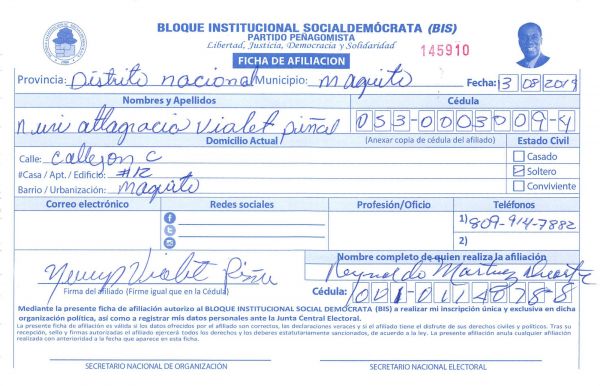 BLOQUE INSTITUCIONAL SOCIALDEMÓCRATA (BIS)
PARTIDO PEÑAGOMISTA
Libertad, Justicia, Democracia y Solidaridad
FICHA DE AFILIACION
145910
Provincia: Distrito nacional Municipio: maquito Fecha: 13 08 2019
Nombres y Apellidos Cédula
Nuri altagracia Vialet piñal 053-0003009-4
Domicilio Actual (Anexar copia de cédula del afiliado) Estado Civil
Calle: Callejon C Casado
#Casa / Apt. / Edificio: #12 Soltero
Barrio / Urbanización: maquito Conviviente
Correo electrónico Redes sociales Profesión/Oficio Teléfonos
1) 809-914-7882
2)
Nombre completo de quien realiza la afiliación
Vialet Reynaldo Martinez Duarte
Firma del afiliado (Firme igual que en la Cédula) Cédula: 001-0114878-8
Mediante la presente ficha de afiliación autorizo al BLOQUE INSTITUCIONAL SOCIAL DEMOCRATA (BIS) a realizar mi inscripción única y exclusiva en dicha
organización política, así como a registrar mis datos personales ante la Junta Central Electoral.
La presente ficha de afiliación es válida si los datos ofrecidos por el afiliado son correctos, las declaraciones veraces y si el afiliado tiene el disfrute de sus derechos civiles y políticos. Tras su
recepción, sello y firmas autorizadas el afiliado ejercerá todos los derechos y los deberes estatutariamente sancionados, de acuerdo a la ley. La presente afiliación anula cualquier afiliación
realizada con anterioridad a la fecha que aparece en esta ficha.
SECRETARIO NACIONAL DE ORGANIZACIÓN SECRETARIO NACIONAL ELECTORAL